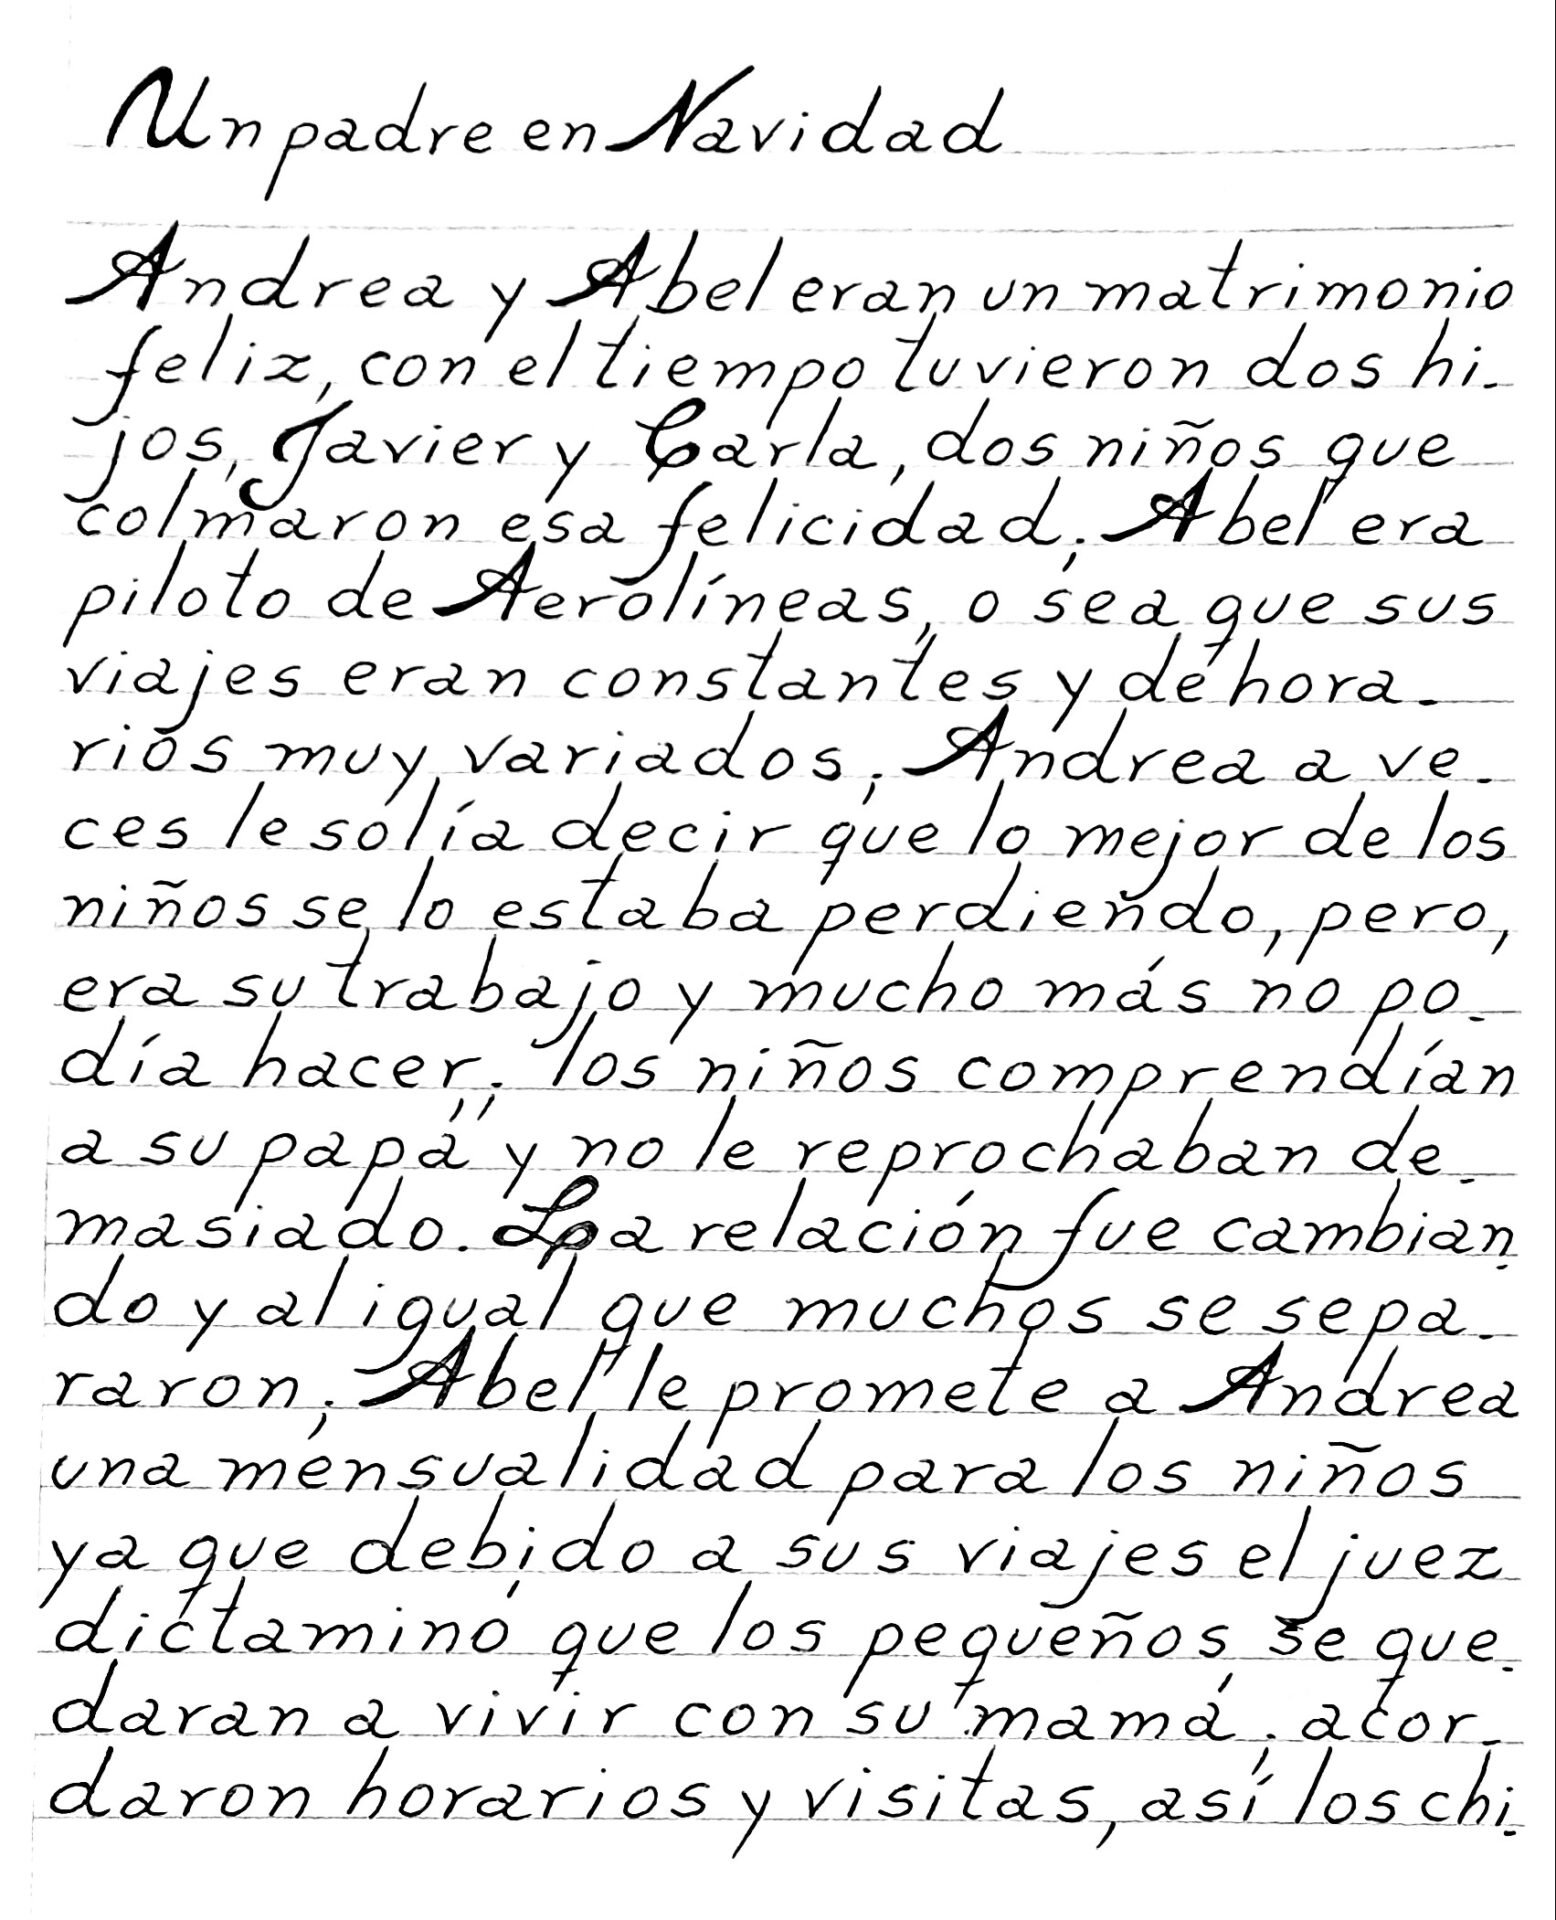 Un padre en Navidad
Andrea y Abel eran un matrimonio
feliz, con el tiempo tuvieron dos hi-
jos, Javier y Carla, dos niños que
colmaron esa felicidad; Abel era
piloto de Aerolíneas, o sea que sus
viajes eran constantes y de hora-
rios muy variados; Andrea a ve-
ces le solía decir que lo mejor de los
niños se lo estaba perdiendo, pero,
era su trabajo y mucho más no po-
día hacer; los niños comprendían
a su papá y no le reprochaban de-
masiado. La relación fue cambian-
do y al igual que muchos se sepa-
raron; Abel le promete a Andrea
una mensualidad para los niños
ya que debido a sus viajes el juez
dictaminó que los pequeños se que-
daran a vivir con su mamá; acor-
daron horarios y visitas, así los chi-